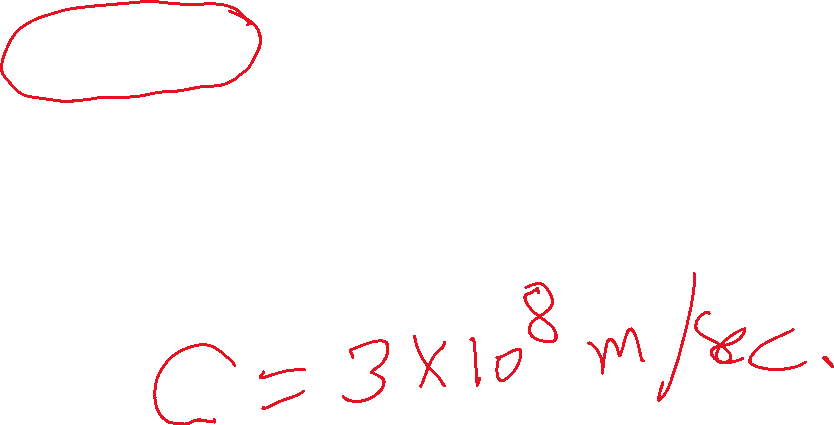 C = 3×10⁸ m/sec.